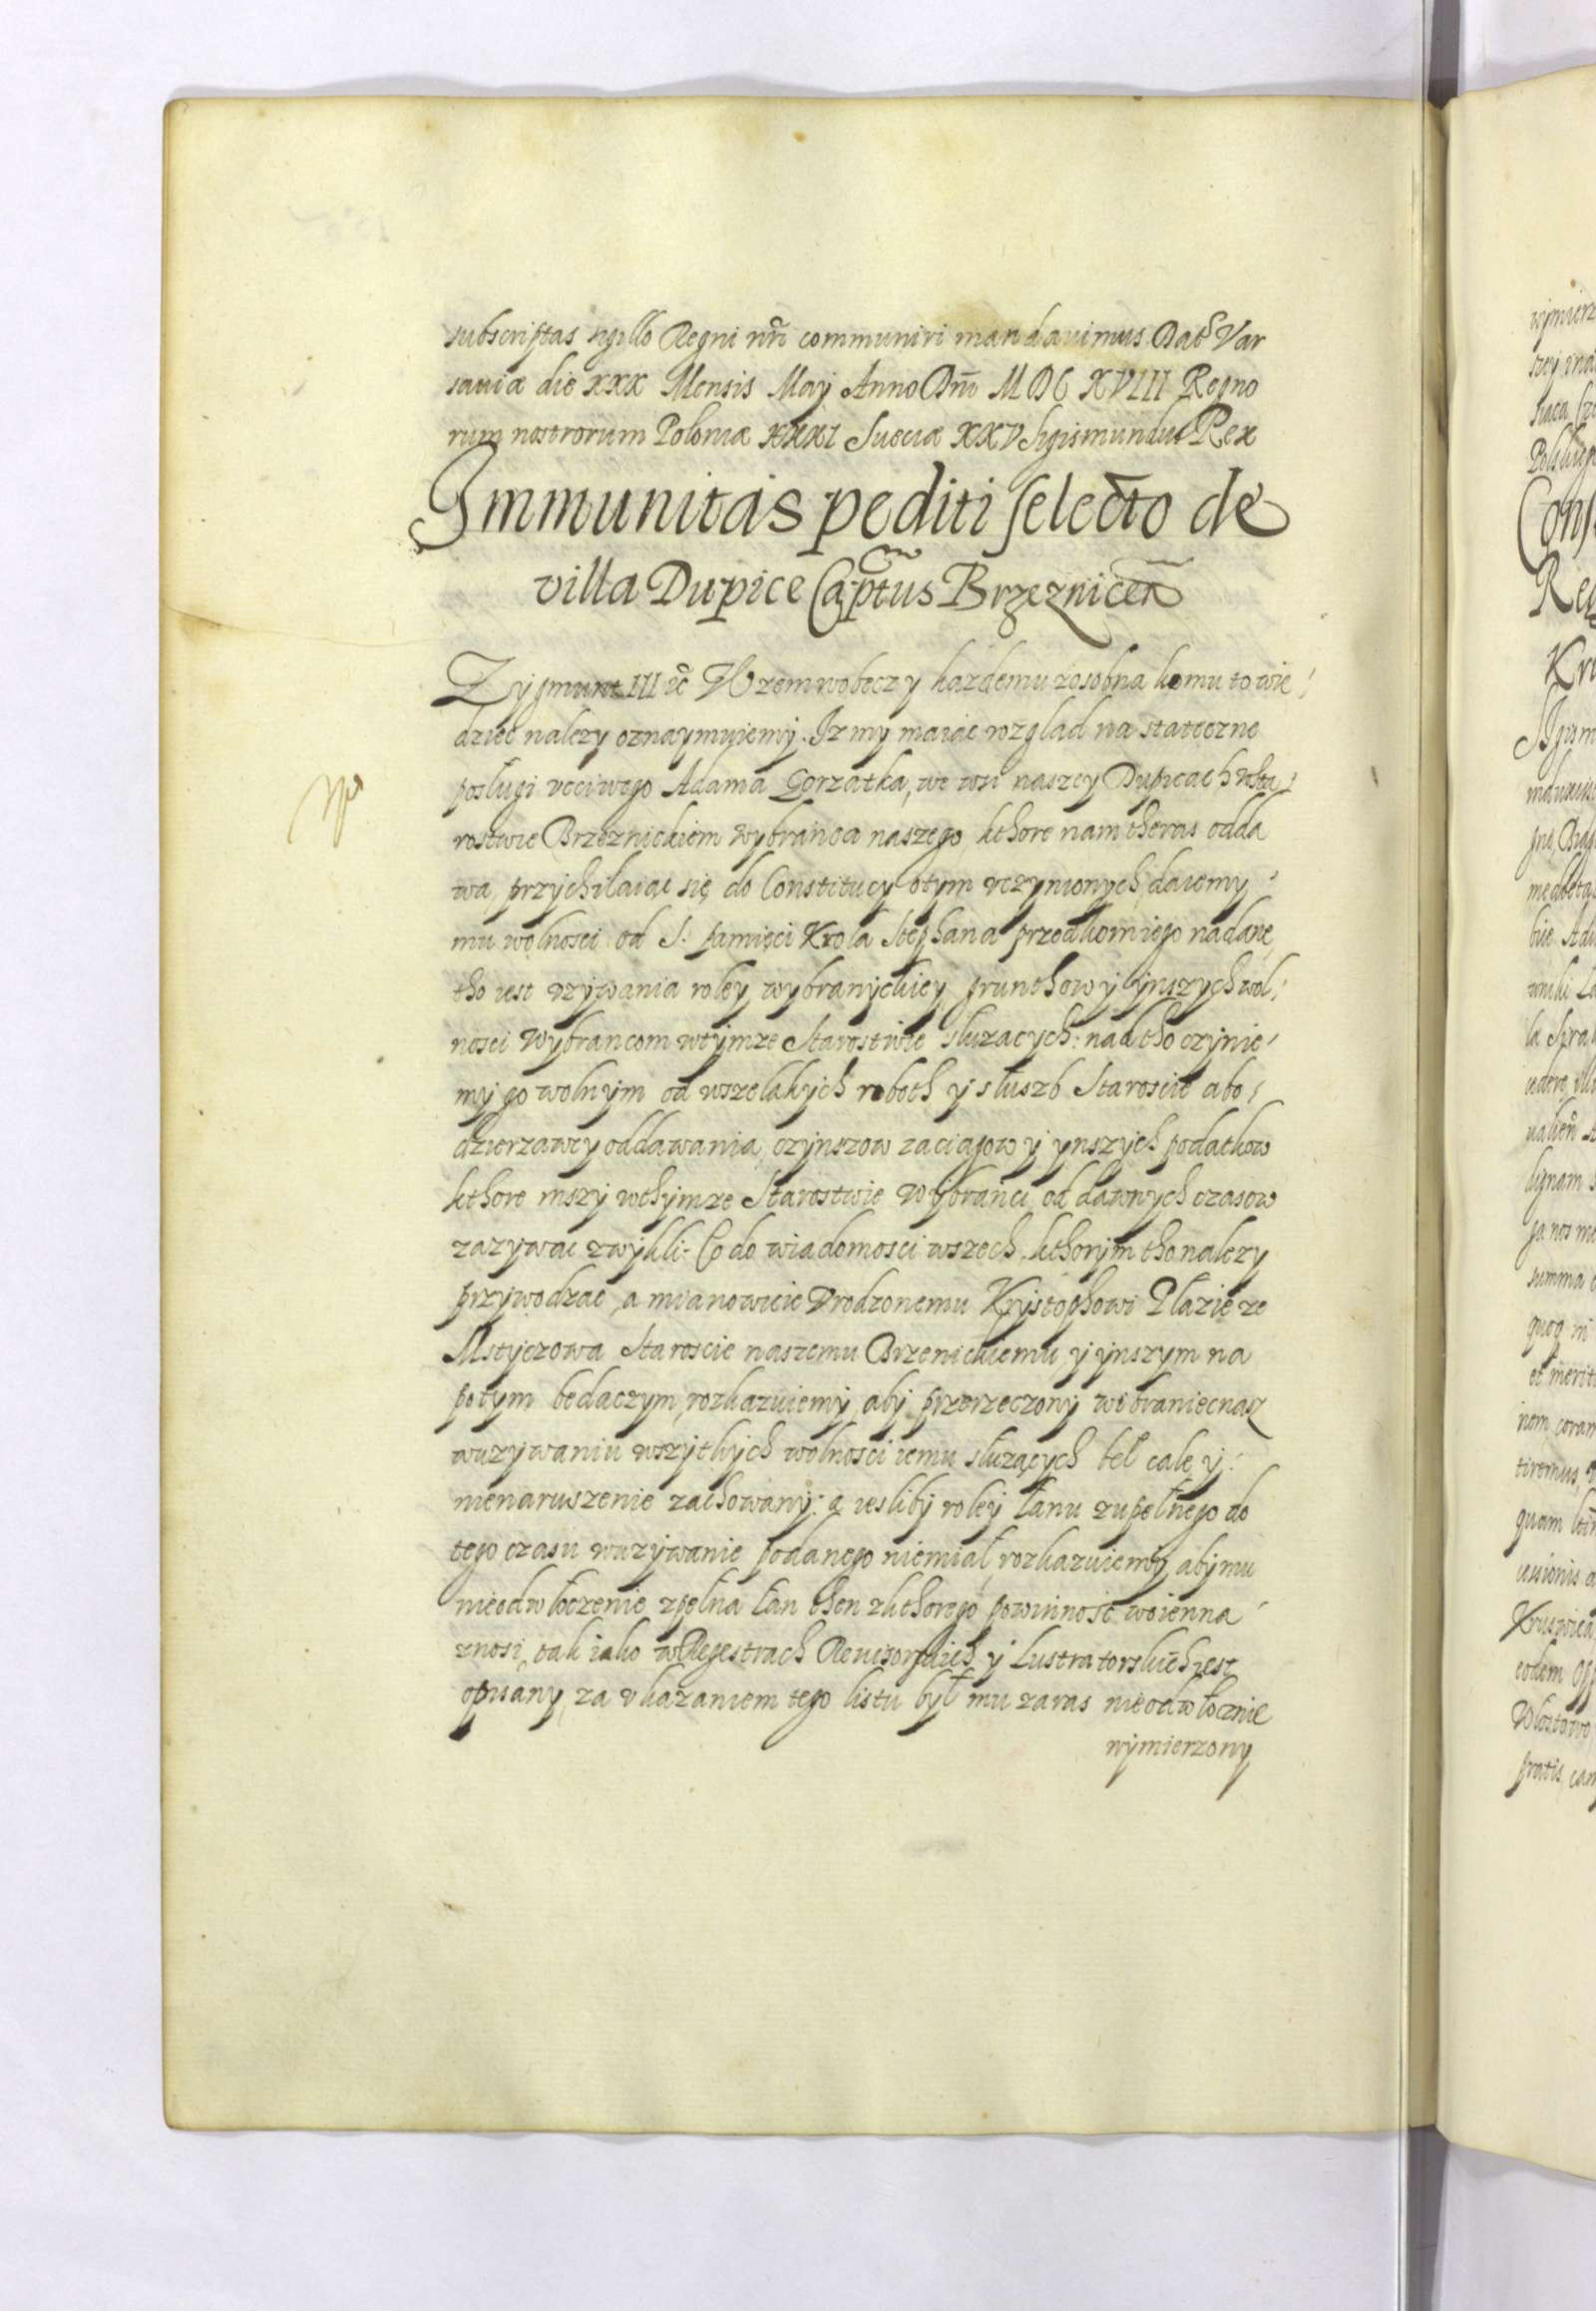 subscriptas sigillo Regni nri communiri mandauimus Dat Var
sauiæ die XXX Mensis Maÿ Anno Dni MDC XVIII Regno
rum nostrorum Poloniæ XXXI Sueciæ XXV Sigismundus Rex
Immunitas pediti selecto de
villa Dupice Captus Brzeznicen
Zygmunt III &c Wszem wobec z y kazdemu zosobna komu to wie
dziec nalezy oznaymuiemy. Iz my maiac wzglad na stateczne
poslugi vcciwego Adama Gorzałka, we wsi naszey Dupicach wsta
rostwie Brzeznickiem wybranca naszego kthore nam theras odda
wa, przychilaiąc się do Constitucy otym vczynionych, daiemy
mu wolnosci od S. pamięci Krola Stephana przodkom iego nadane
tho iest vzywania roley wybranyckiey grunthow y ynszych wol
nosci wybrancom wtymze Starostwie sluzacych: nad tho czynie
my go wolnym od wszelakich roboth y służb Staroscie abo
dzierzawcy oddawania, czynszow zaciagow y ynszych podatkow
kthore inszy wthymze Starostwie wybranci od dawnych czasow
zazywac zwykli. Co do wiadomosci wszech kthorym tho nalezy
przywodzac, a mianowicie Vrodzonemu Krystophowi Plazie ze
Mstyczowa Staroscie naszemu Brzenickiemu y ynszym na
potym bedaczym, rozkazuiemy, aby przerzeczony wibraniec nasz
wuzywaniu wszytkych wolnosci iemu sluzących bel cale y
nienaruszenie zachowany: a iesliby roley łanu zupełnego do
tego czasu wuzywanie podanego niemiał, rozkazuiemy, aby mu
nieodwłoczenie zpełna łan then zkthorego powinnosc woienna
znosi, tak iako w Regestrach Reuisorskich y Lustratorskich iest
opisany, za vkazaniem tego listu był mu zaras nieodwłocznie
wymierzony